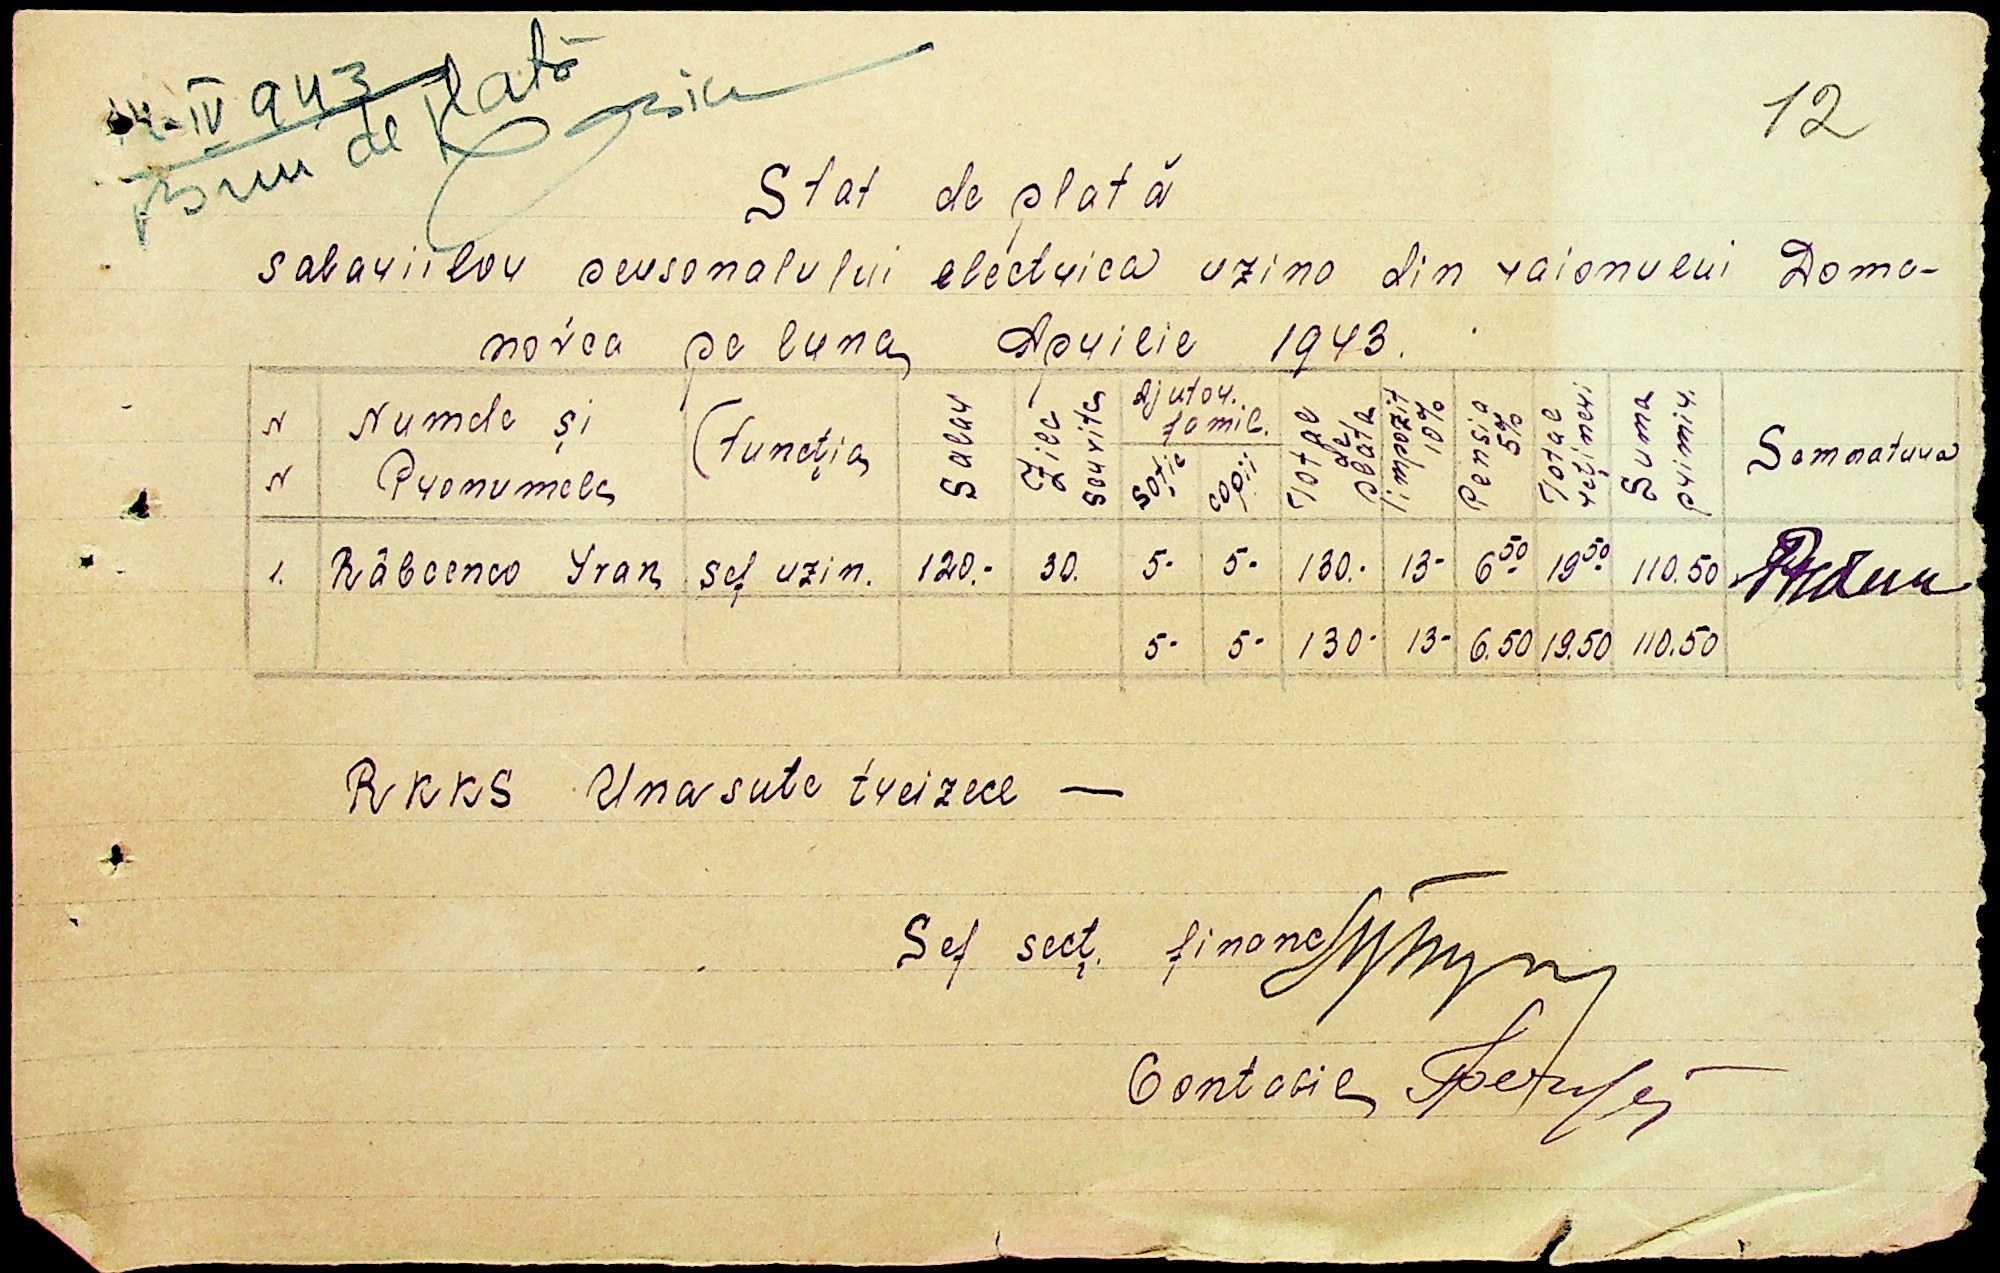 IV 943
Bun de Plată
12
Stat de plată
salariilor personalului electrica uzina din raionului Doma-
novca pe luna Aprilie 1943.
N N Numele și Pronumele funcția Salar Zile servite Ajutor. famil. soție copii Total de plata impozit 10% Pensia 5% Total rețineri Suma primir. Semnatura
1. Râbcenco Ivan șef uzin. 120.- 30. 5- 5- 130.- 13- 6.50 19.50 110.50
5- 5- 130- 13- 6.50 19.50 110.50
RKKS Una sute treizece —
Sef secț. financ
Contabil